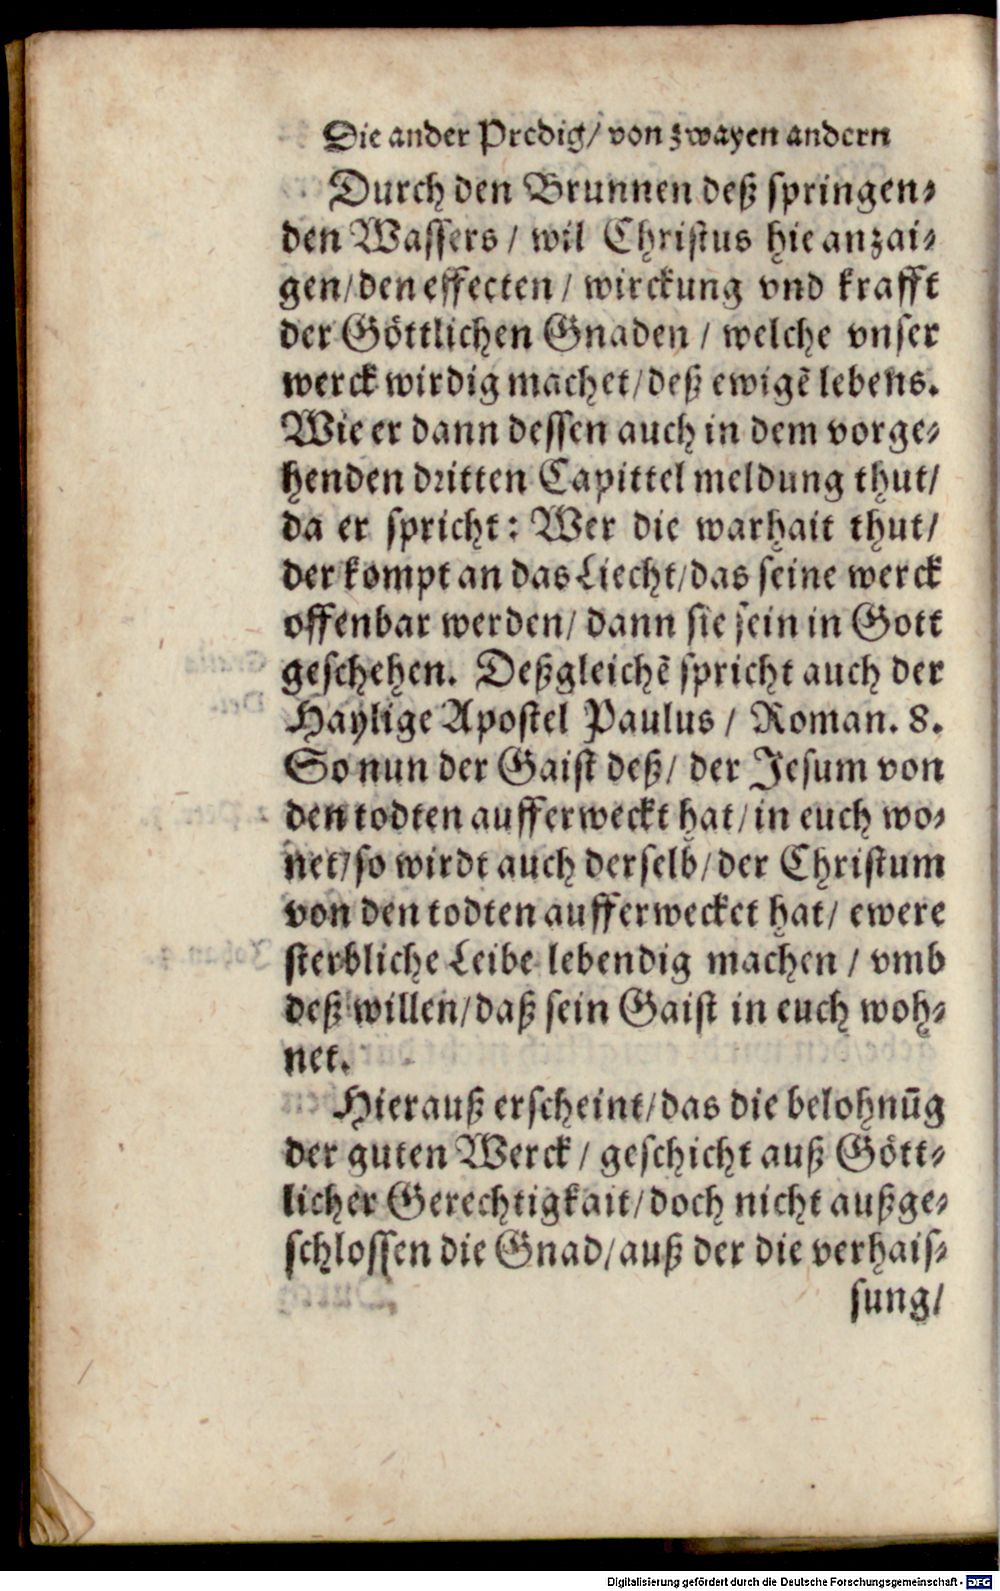 Die ander Predig/ von zwayen andern
Durch den Brunnen deß springen⸗
den Wassers / wil Christus hie anzai⸗
gen/ den effecten / wirckung vnd krafft
der Göttlichen Gnaden / welche vnser
werck wirdig machet/ deß ewigē lebens.
Wie er dann dessen auch in dem vorge⸗
henden dritten Capittel meldung thut/
da er spricht: Wer die warhait thut/
der kompt an das Liecht/ das seine werck
offenbar werden/ dann sie sein in Gott
geschehen. Deßgleichē spricht auch der
Haylige Apostel Paulus / Roman. 8.
So nun der Gaist deß/ der Jesum von
den todten aufferweckt hat/ in euch wo⸗
net/ so wirdt auch derselb/ der Christum
von den todten aufferwecket hat/ ewere
sterbliche Leibe lebendig machen / vmb
deß willen/ daß sein Gaist in euch woh⸗
net.
Hierauß erscheint/ das die belohnūg
der guten Werck / geschicht auß Gött⸗
licher Gerechtigkait/ doch nicht außge⸗
schlossen die Gnad/ auß der die verhais⸗
sung/
Digitalisierung gefördert durch die Deutsche Forschungsgemeinschaft - DFG